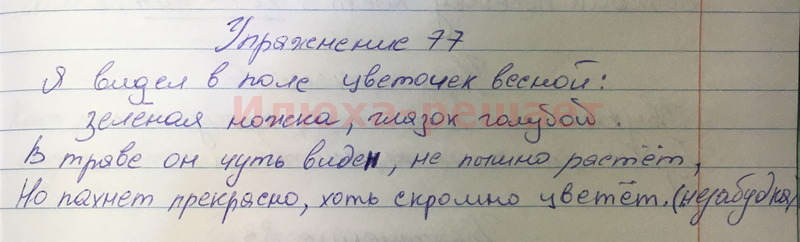 Упражнение 77
Я видел в поле цветочек весной:
Илюха-решает
зелёная ножка, глазок голубой.
В траве он чуть виден, не пышно растёт,
Но пахнет прекрасно, хоть скромно цветёт. (незабудка)